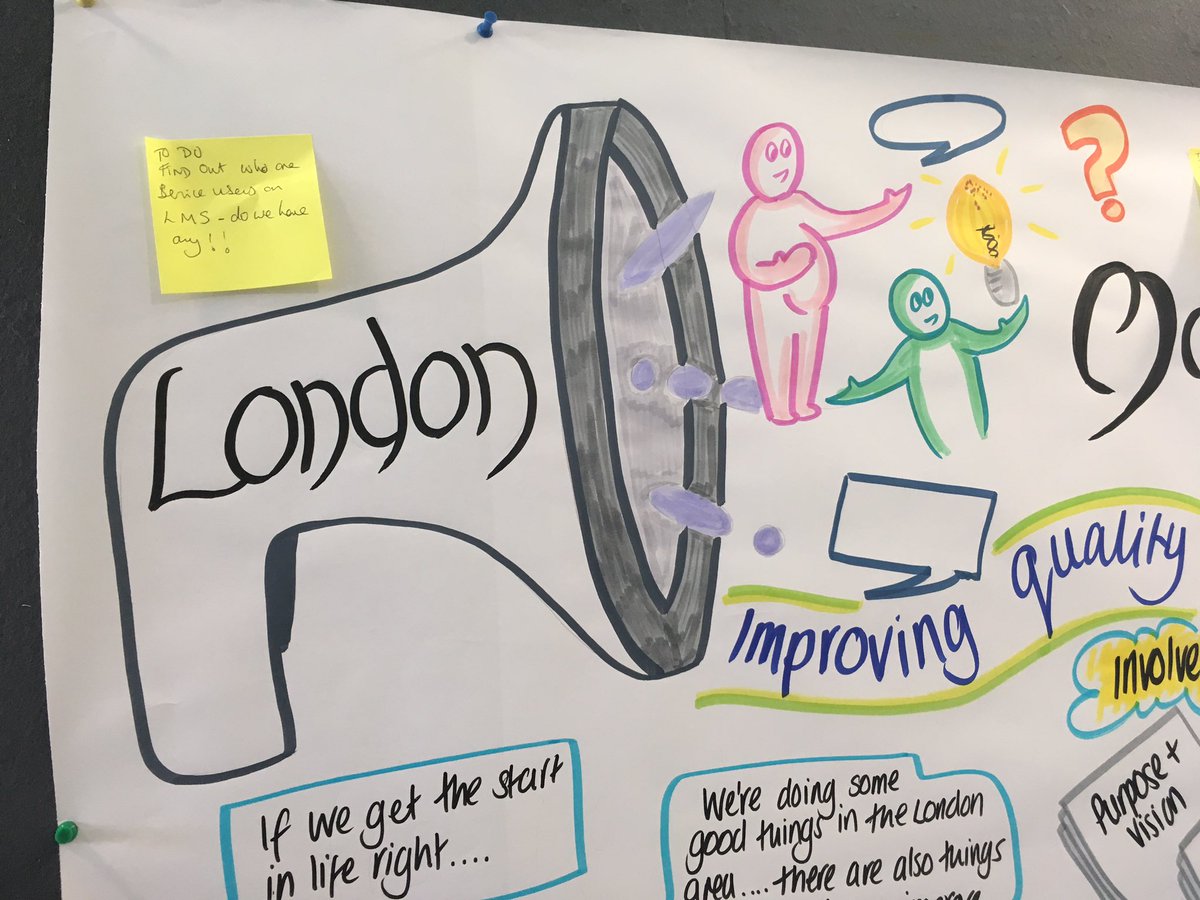 TO DO
FIND OUT who are
Service users on
LMS - do we have
any!!
London
Improving quality
Involve
If we get the start
in life right....
We're doing some
good things in the London
area.... there are also things
Purpose +
vision